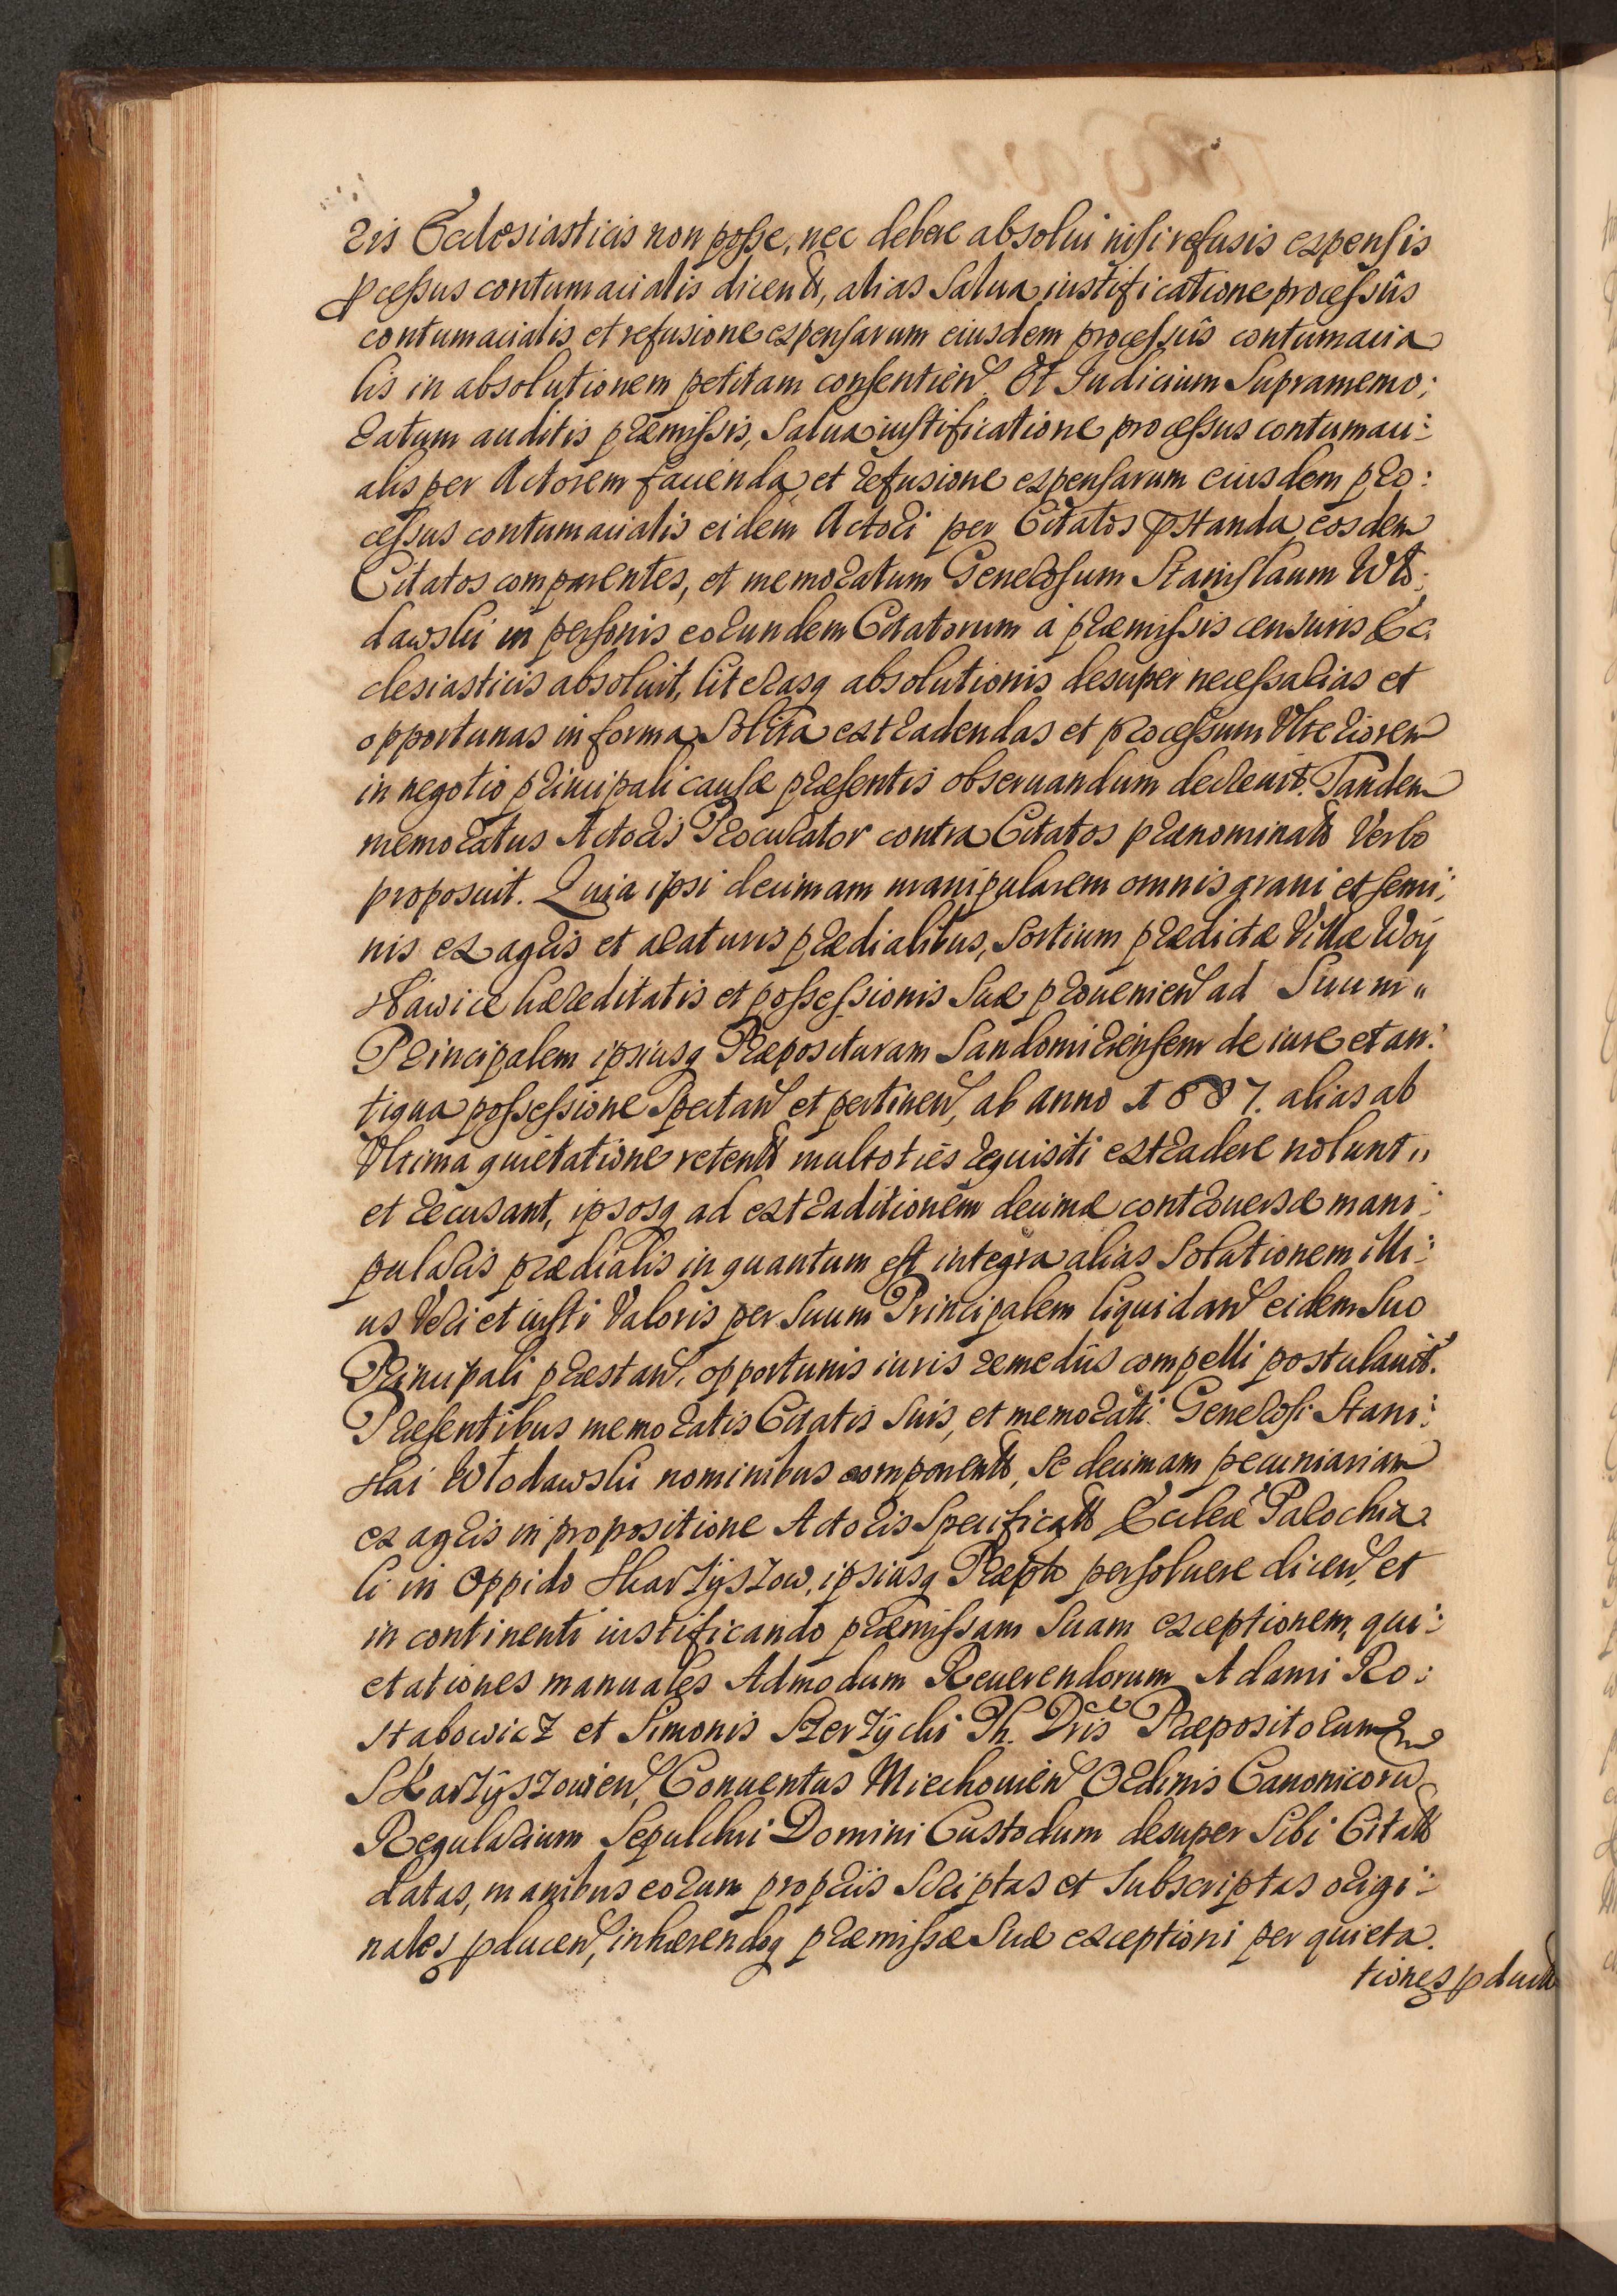 ris Ecclesiasticis non posse, nec debere absolui nisi refusis expensis
pcessus contumacialis dicentt, alias Salua iustificatione processûs
contumacialis et refusione expensarum eiusdem processûs contumacia
lis in absolutionem petitam consentien. Et Iudicium Supramemo:
ratum auditis præmissis, Salua iustificatione processus contumaci:
alis per Actorem facienda, et refusione expensarum eiusdem pro:
cessus contumacialis eidem Actori per Citatos pstanda, eosdem
Citatos comparentes, et memoratum Generosum Stanislaum Wło:
dawski in personis eorundem Citatorum à præmissis censuris Ec:
clesiasticis absoluit, literasq absolutionis desuper necessarias et
opportunas in forma Solita extradendas et processum Vlteriorem
in negotio principali causæ præsentis obseruandum decreuit. Tandem
memoratus Actoris Procurator contra Citatos prænominatt Verbo
proposuit. Quia ipsi decimam manipularem omnis grani et semi:
nis ex agris et araturis prædialibus, Sortium prædictæ Villæ Woy
sławice hæreditatis et possessionis Suæ prouenien ad Suum"
Principalem ipsiusq Præposituram Sandomiriensem de iure et an:
tiqua possessione Spectan et pertinen, ab anno 1687. alias ab
Vltima quietatione retentt multoties requisiti extradere nolunt"
et recusant, ipsosq ad extraditionem decimæ controuersæ mani:
pularis prædialis in quantum est integra alias Solutionem illi:
us Veri et iusti Valoris per Suum Principalem liquidan eidem Suo
Principali præstan, opportunis iuris remediis compelli postulauit.
Præsentibus memoratis Citatis Suis, et memorati Generosi Stani:
slai Włodawski nominibus comparentt, Se decimam pecuniariam
ex agris in propositione Actoris Specificatt Ecclæ Parochia
li in Oppido Skarzyszow, ipsiusq Præpto persoluere dicen, et
in continenti iustificando præmissam Suam exceptionem, qui:
etationes manuales Admodum Reuerendorum Adami Ro:
stabowicz et Simonis Szerzycki Ph. Dris Præpositorum
Skarzyszouien, Conuentus Miechouien Ordinis Canonicorũ
Regularium Sepulchri Domini Custodum desuper Sibi Citatt
datas, manibus eorum propriis Scriptas et Subscriptas origi:
nales pducen, inhærendoq præmissæ Suæ exceptioni per quieta.
tiones pductt